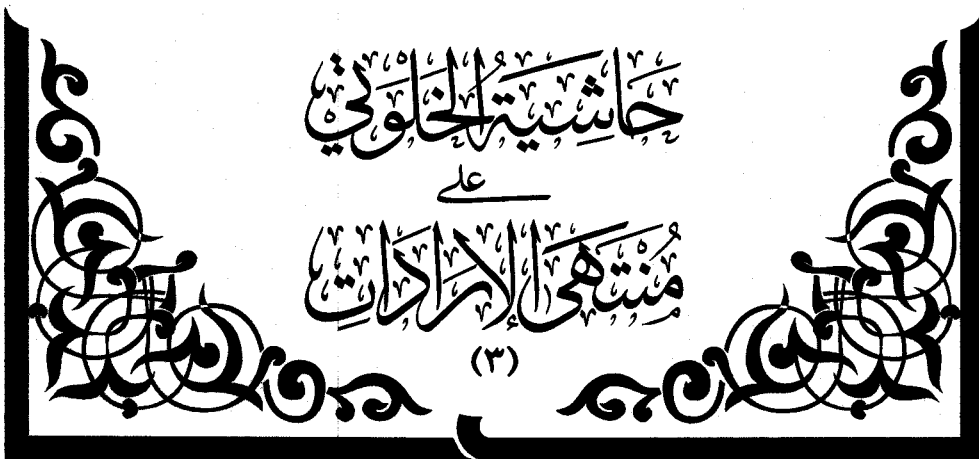 حَاشِيَةُ الخَلْوَتِي
عَلَى
مُنْتَهَى الإِرَادَاتِ
(٣)